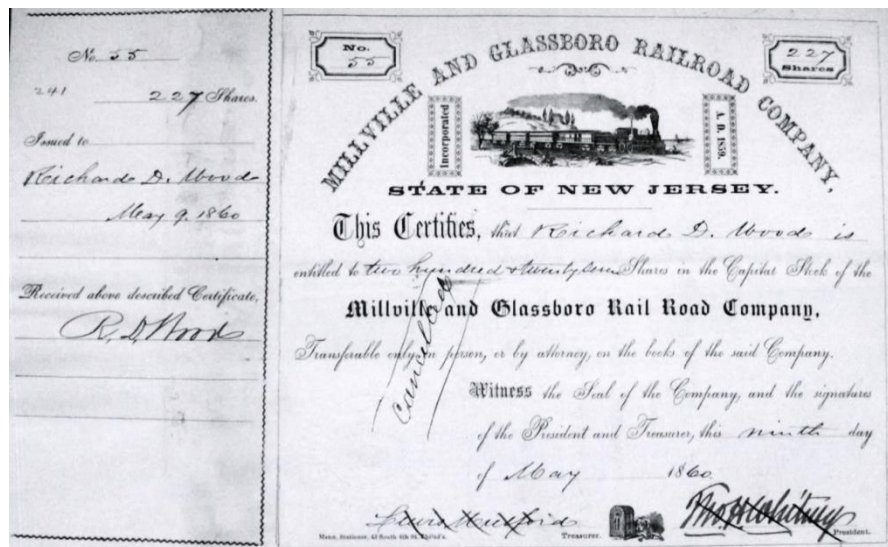 No. 55
241 227 Shares.
Issued to
Richard D. Wood
May 9. 1860
Received above described Certificate,
R. D. Wood
No.
55
227
Shares
MILLVILLE AND GLASSBORO RAILROAD COMPANY,
Incorporated
A. D. 1859.
STATE OF NEW JERSEY.
This Certifies, that Richard D. Wood is
entitled to two hundred & twenty seven Shares in the Capital Stock of the
Millville and Glassboro Rail Road Company,
Transferable only in person, or by attorney, on the books of the said Company.
Cancelled
Witness the Seal of the Company, and the signatures
of the President and Treasurer, this ninth day
of May 1860
Lewis Mulford
Thos H Whitney
Mann, Stationer, 43 South 4th St. Philad'a.
Treasurer.
President.